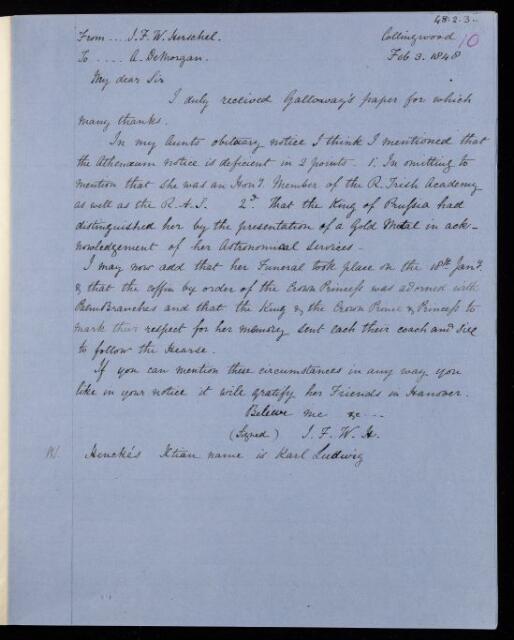 48.2.3.
From .... J.F.W. Herschel. Collingwood 10
To .... A. DeMorgan. Feb 3. 1848
My dear Sir
I duly received Galloway's paper for which
many thanks.
In my Aunts obituary notice I think I mentioned that
the Athenæum notice is deficient in 2 points. 1. In omitting to
mention that she was an Hony. Member of the R. Irish Academy
as well as the R.A.S. 2d. That the King of Prussia had
distinguished her by the presentation of a Gold Medal in ack-
nowledgement of her Astronomical services.
I may now add that her Funeral took place on the 18th Jany.
& that the coffin by order of the Crown Princess was adorned with
Palm Branches and that the King & the Crown Prince & Princess to
mark their respect for her memory sent each their coach and
to follow the Hearse.
If you can mention these circumstances in any way you
like in your notice it will gratify her Friends in Hanover.
Believe me &c ...
(Signed) J.F.W.H.
Hencke's Xtian name is Karl Ludwig